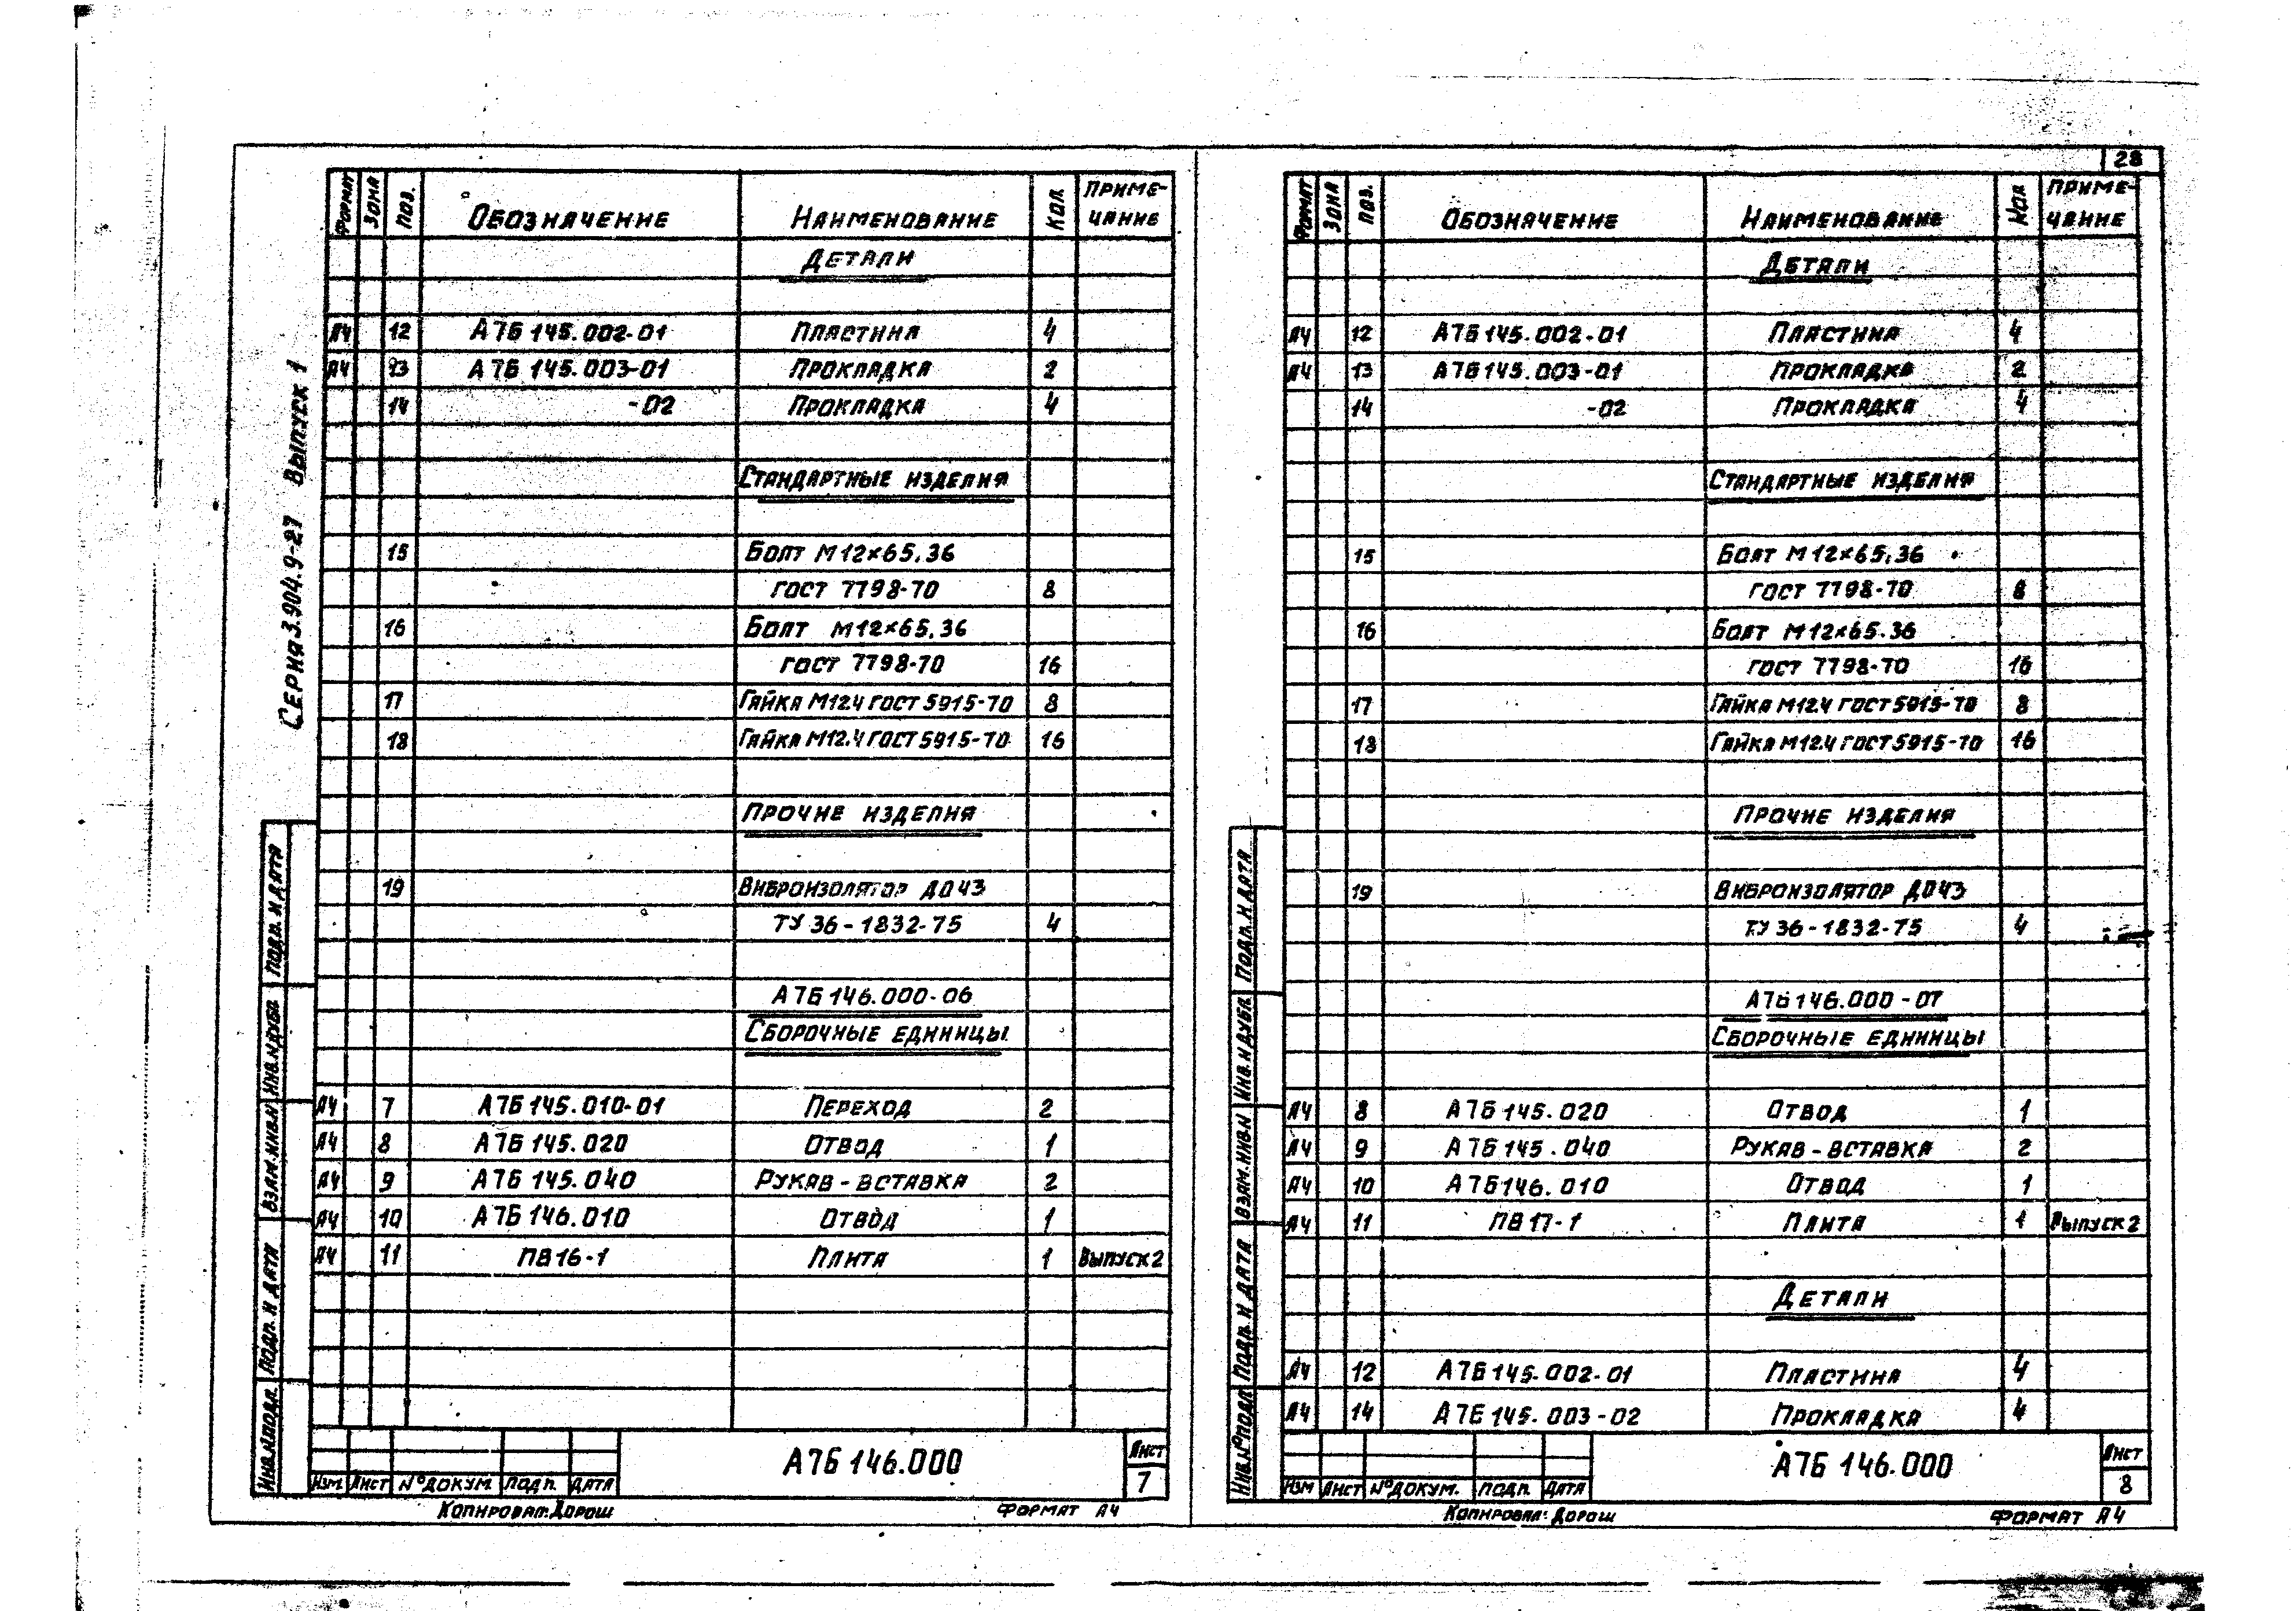 28
Серия 3.904.9-27 Выпуск 1
Формат Зона Поз. Обозначение Наименование Кол. Приме-
чание
Детали
А4 12 А7Б 145.002-01 Пластина 4
А4 13 А7Б 145.003-01 Прокладка 2
14 -02 Прокладка 4
Стандартные изделия
15 Болт М12×65.36
ГОСТ 7798-70 8
16 Болт М12×65.36
ГОСТ 7798-70 16
17 Гайка М12.4 ГОСТ 5915-70 8
18 Гайка М12.4 ГОСТ 5915-70 16
Прочие изделия
19 Виброизолятор ДО43
ТУ 36-1832-75 4
А7Б 146.000-06
Сборочные единицы
А4 7 А7Б 145.010-01 Переход 2
А4 8 А7Б 145.020 Отвод 1
А4 9 А7Б 145.040 Рукав-вставка 2
А4 10 А7Б 146.010 Отвод 1
А4 11 ПВ16-1 Плита 1 Выпуск 2
Подп. и дата
Инв.№дубл.
Взам.инв.№
Подп. и дата
Инв.№подл.
Изм. Лист №докум. Подп. Дата
А7Б 146.000
Лист
7
Копировал: Дорош Формат А4
Формат Зона Поз. Обозначение Наименование Кол Приме-
чание
Детали
А4 12 А7Б 145.002-01 Пластина 4
А4 13 А7Б 145.003-01 Прокладка 2
14 -02 Прокладка 4
Стандартные изделия
15 Болт М12×65.36
ГОСТ 7798-70 8
16 Болт М12×65.36
ГОСТ 7798-70 16
17 Гайка М12.4 ГОСТ 5915-70 8
18 Гайка М12.4 ГОСТ 5915-70 16
Прочие изделия
19 Виброизолятор ДО43
ТУ 36-1832-75 4
А7Б 146.000-07
Сборочные единицы
А4 8 А7Б 145.020 Отвод 1
А4 9 А7Б 145.040 Рукав-вставка 2
А4 10 А7Б 146.010 Отвод 1
А4 11 ПВ17-1 Плита 1 Выпуск 2
Детали
А4 12 А7Б 145.002-01 Пластина 4
А4 14 А7Б 145.003-02 Прокладка 4
Подп. и дата
Инв.№дубл.
Взам.инв.№
Подп. и дата
Инв.№подл.
Изм Лист №докум. Подп. Дата
А7Б 146.000
Лист
8
Копировал: Дорош Формат А4